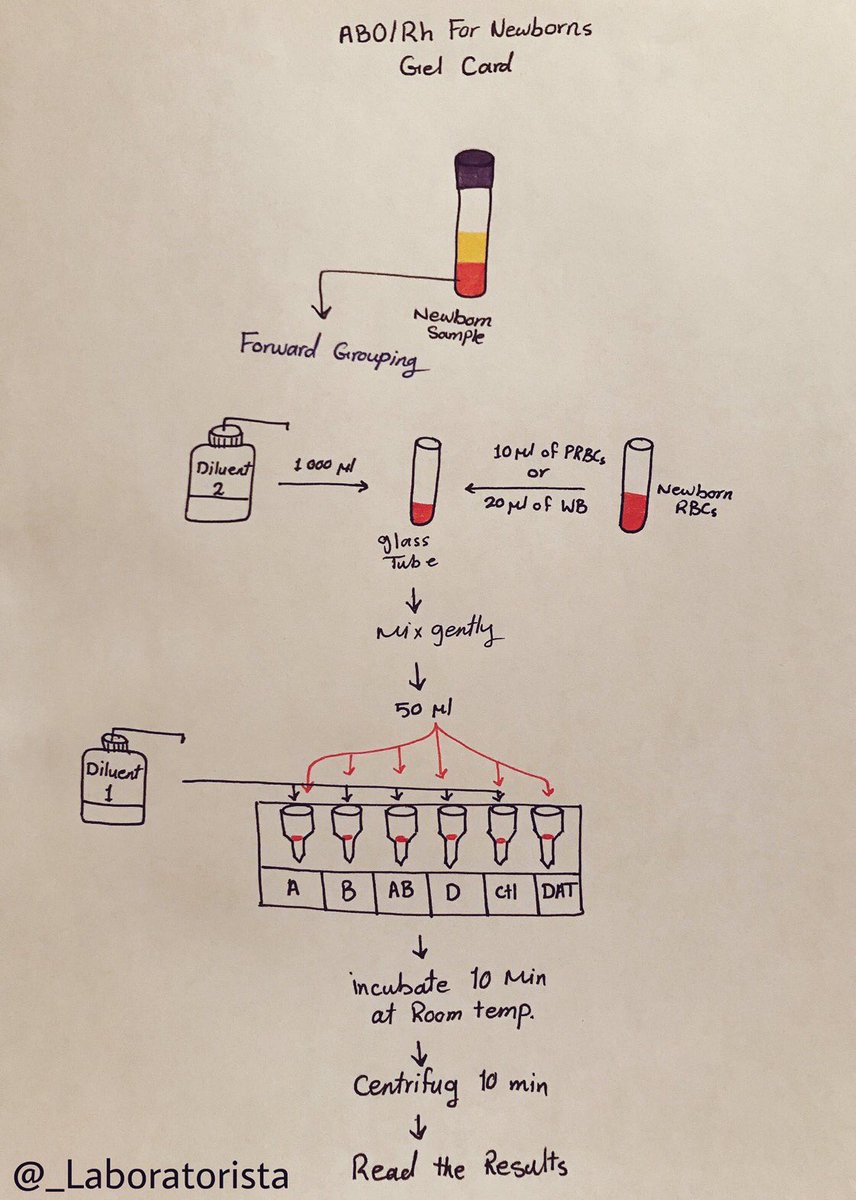 ABO/Rh For Newborns
Gel Card
Newborn
Sample
Forward Grouping
Diluent
2
1000 µl
glass
Tube
10 µl of PRBCs
or
20 µl of WB
Newborn
RBCs
Mix gently
50 µl
Diluent
1
A B AB D Ctl DAT
incubate 10 Min
at Room temp.
Centrifug 10 min
Read the Results
@_Laboratorista